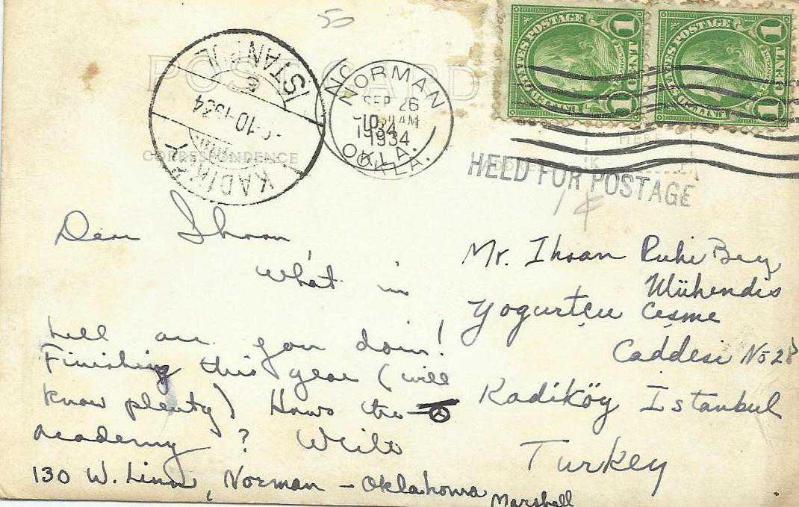 5
POST CARD
CORRESPONDENCE
ISTANBUL
-10-1934
KADIKÖY
NORMAN
SEP 26
AM
1934
OKLA.
UNITED STATES POSTAGE
1 CENT 1
UNITED STATES POSTAGE
1 CENT 1
HELD FOR POSTAGE
1¢
Dear Ihsan,
What in
hell are you doin!
Finishing this year (will
know plenty) Hows the
academy? Write
130 W. Linn, Norman - Oklahoma
Marshall
Mr. Ihsan Ruhi Bey
Mühendis
Yogurtçu Çesme
Caddesi No 28
Kadiköy Istanbul
Turkey